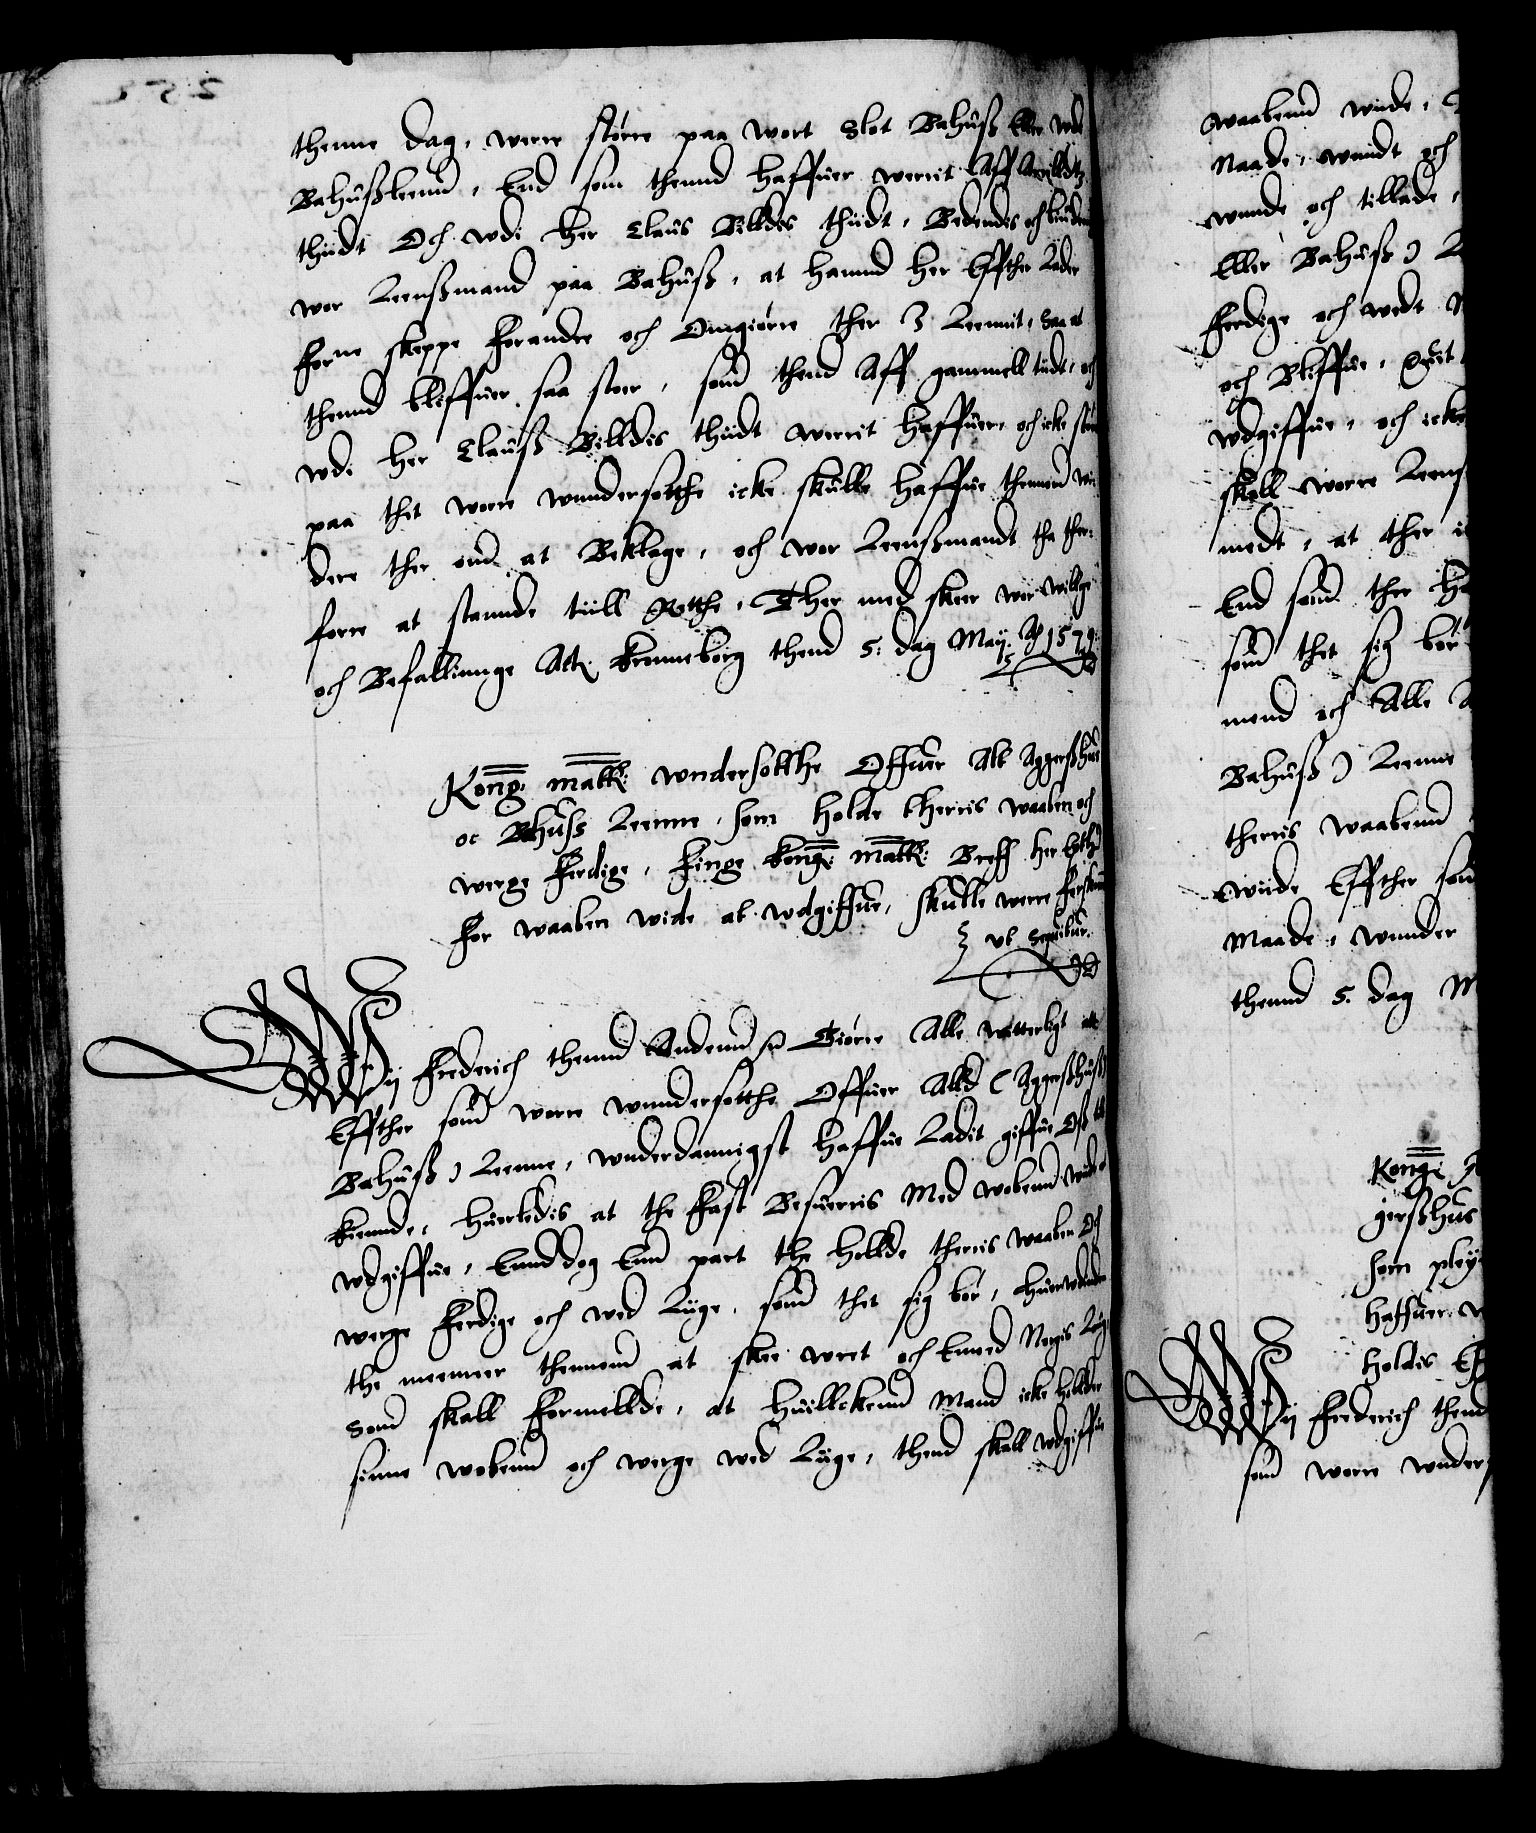 thenne dag, werre større paa wort Slot Bahuß Eller wdi
Bahußleenn, End som thennd haffuer werrit Aff Arrilds
thiidt Och wdi her Claus Billdes thiidt, Bedendes och biudendes
wor Leenßmand paa Bahuß, at hannd her Effther Lader
forne skeppe forandre och Omgiørre ther i Leenit, saa at
thennd bliffuer saa stoer, som thend Aff gammell tiidt, och
wdi her Clauß Billdis thiidt werrit haffuer, och icke større
paa thet worre wundersotthe icke skulle haffue thennom wi-
dere ther om at Beklage, och wor Leenßmandt tha ther-
forre at stannde tiill Retthe, Ther med skeer wor williige
och Befallinnge Actt Kronneborg thend 5. dag May Ao 1579.
Kong: Matt: wndersotthe Offuer Alt Aggerßhuus
oc Bahuss Leenne, som holde therris waaben och
werge ferdige, finge Kong: Matt: Breff her Effther
for waaben wide at wdgiffue, skulle werre forskaanit
vt Sequitur.
Wij Frederich thennd Anndenn Giørre Alle witterligt att
Effther som worre wundersotthe Offuer Altt (Aggerßhuß
Bahuß) Leenne, wnderdannigst haffue Ladit giffue Oß till
kiennde, huorledis at the fast Besuerris Med wobenn wiide at
wdgiffue, Enndog Enn part the hollde therris waaben Och
werge ferdige och wed Liige, som thet sig bør, huorwdinden
the meener thennom at skee wret och Emod Norgis Lug
som skall formellde, at huillckenn Mand icke hollder
sinne wobenn och werge wed Liige, thend skall wdgiffue
waabenn wiide,
Naade, wundt och
wunde och tillade,
Eller Bahuß)
ferdige och wedt
och Bliffue, Quit
wdgiffue, och icke
skall worre Leens
medt, at ther
End som ther
som thet sig bør
mend och Alle
Bahuß) Leenne
therris waabenn
wiide Effther som
Maade, wunder
thennd 5. dag M
Kong:
gerßhus
som pley
haffuer
holdis
Wij Frederich thend
som worre wnders